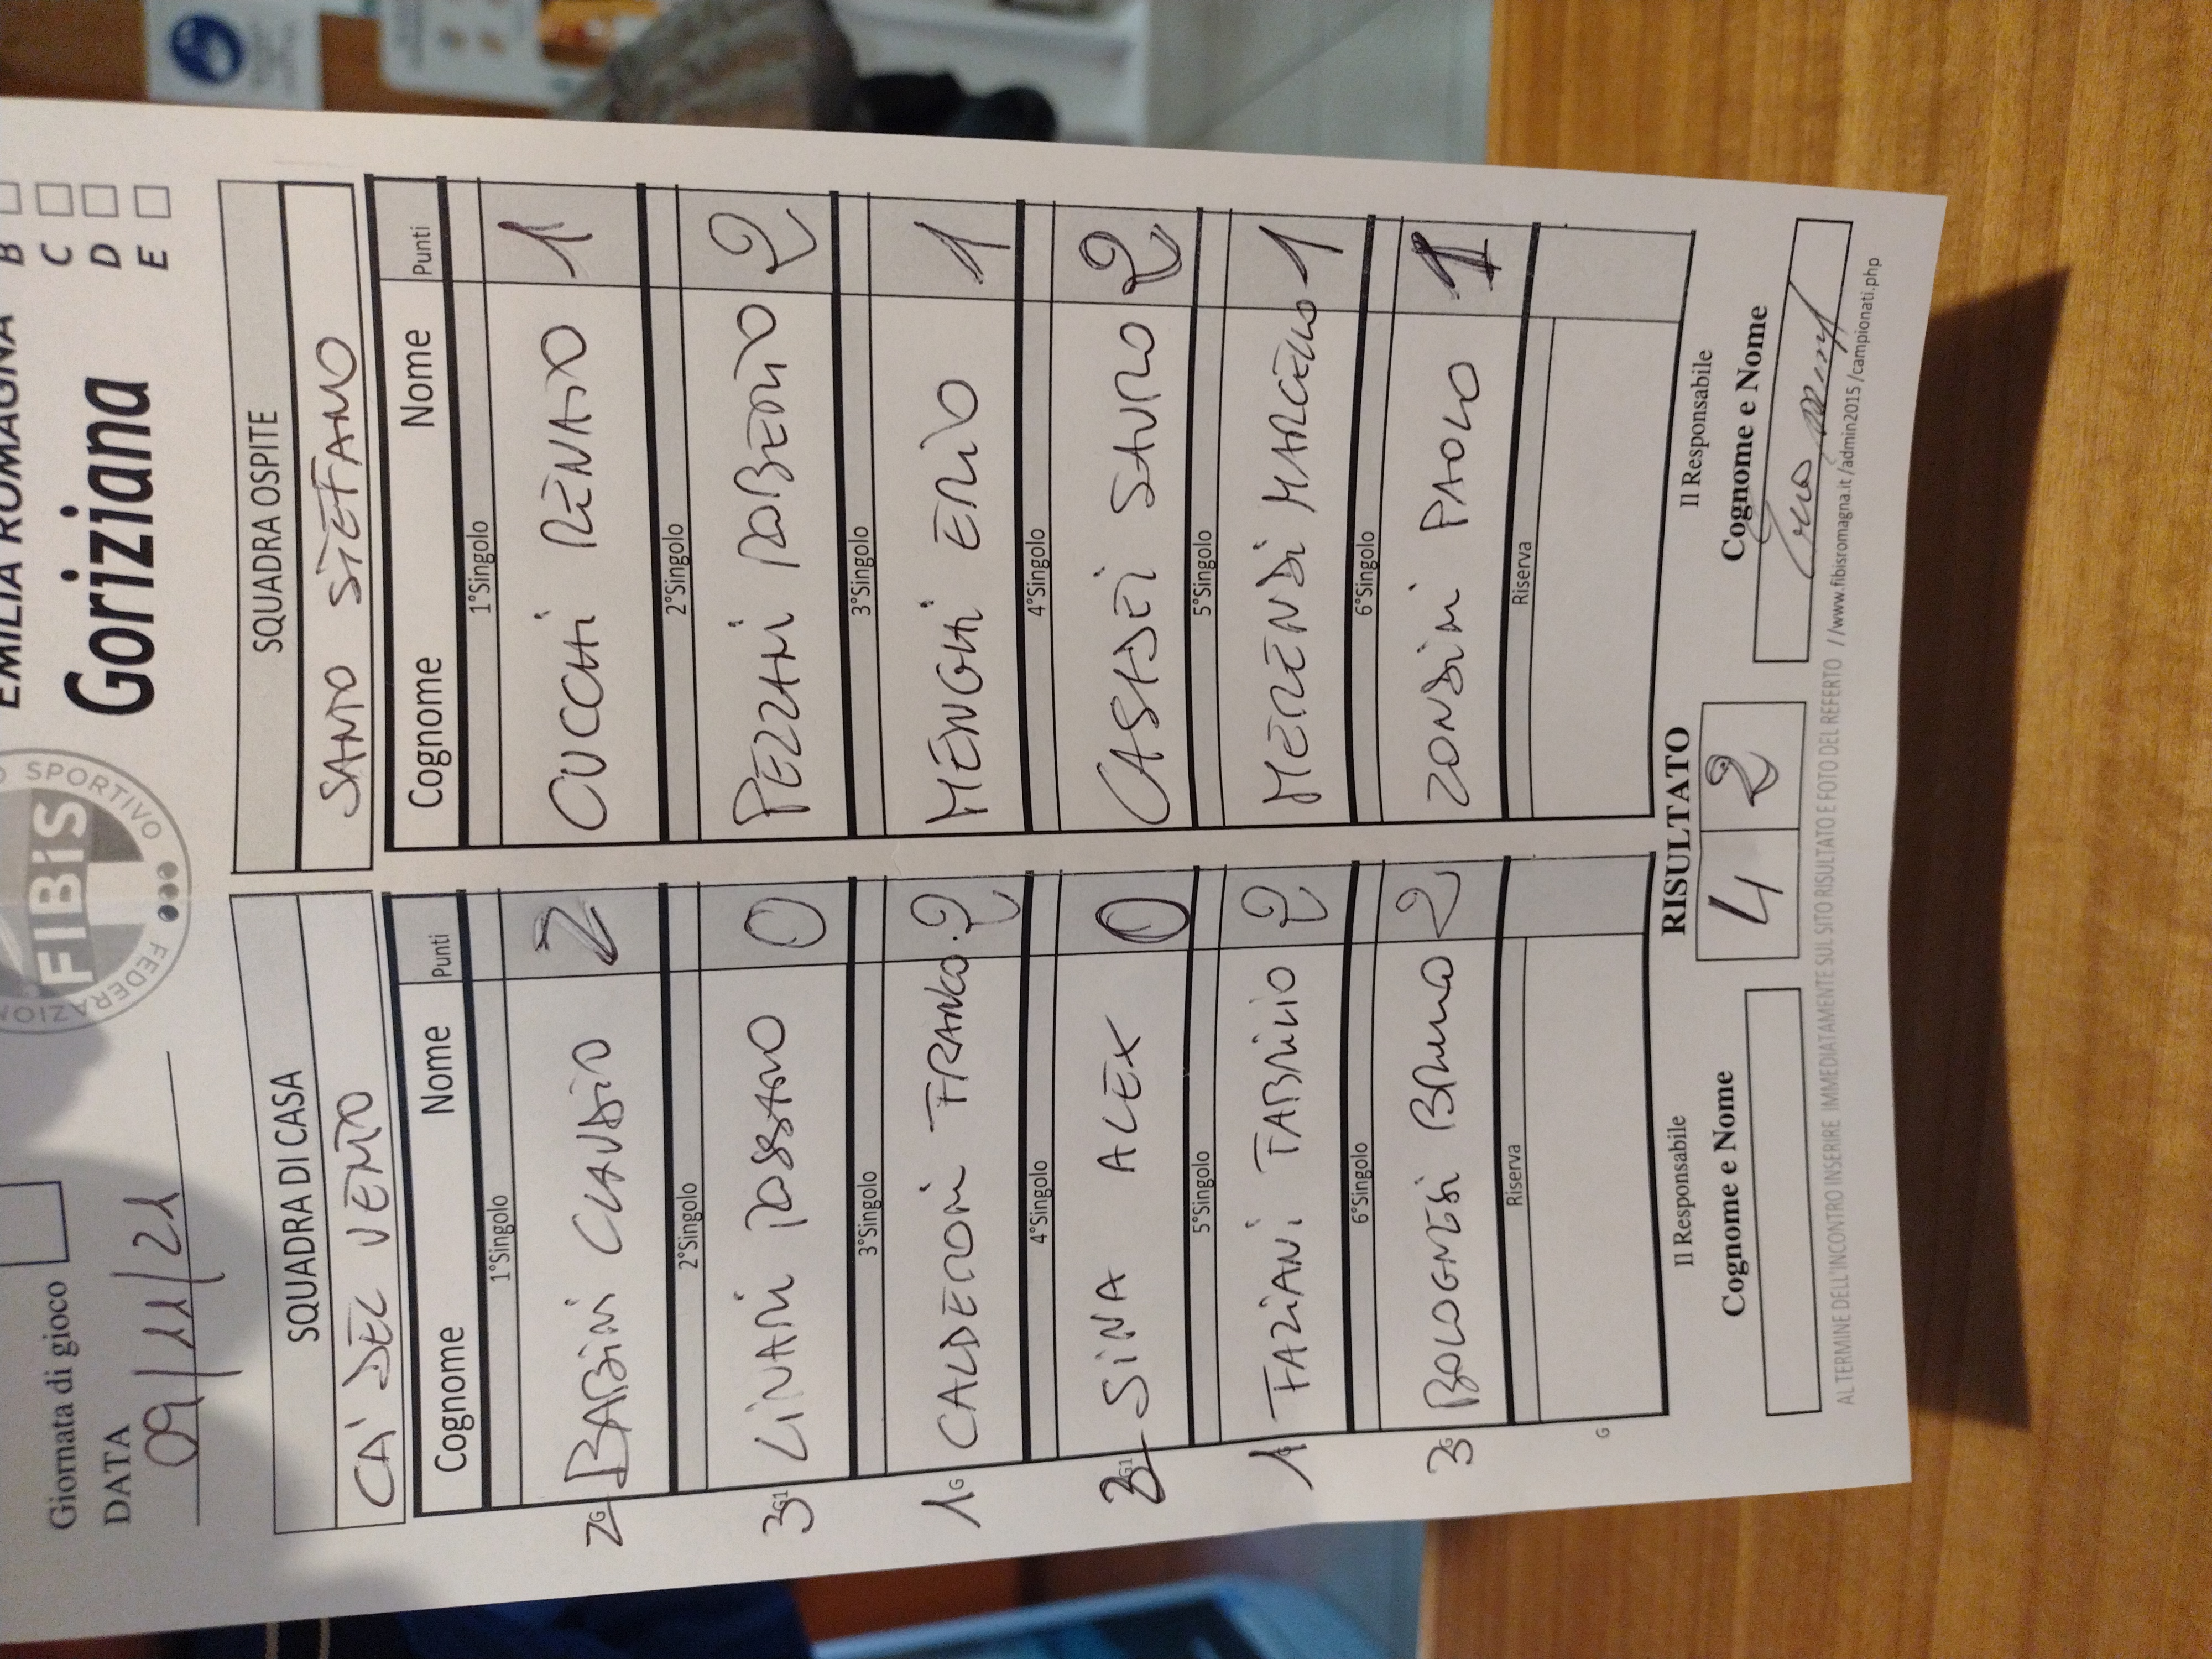 EMILIA ROMAGNA
Gorizia​na
B
C
D
E
SPORTIVO
FIBiS
FEDERAZION
Giornata di gioco
DATA
09/11/21
SQUADRA DI CASA
CA' DEL VENTO
Cognome Nome Punti
1°Singolo
2 G BABINI CLAUDIO 2
2°Singolo
3 G1 LINARI ROSSANO 0
3°Singolo
1 G CALDERONI FRANCO 2
4°Singolo
G1 SINA ALEX 0
5°Singolo
1 FAZIANI FABRIZIO 2
6°Singolo
3 G BOLOGNESI BRUNO 2
Riserva
G
SQUADRA OSPITE
SANTO STEFANO
Cognome Nome Punti
1°Singolo
CUCCHI RENATO 1
2°Singolo
PEZZANI ROBERTO 2
3°Singolo
MENGHI ERIO 1
4°Singolo
CASADEI SAURO 2
5°Singolo
MERENDI MARCELLO 1
6°Singolo
ZONDINI PAOLO 1
Riserva
RISULTATO
4 2
Il Responsabile
Cognome e Nome
Il Responsabile
Cognome e Nome
AL TERMINE DELL'INCONTRO INSERIRE IMMEDIATAMENTE SUL SITO RISULTATO E FOTO DEL REFERTO //www.fibisromagna.it/admin2015/campionati.php